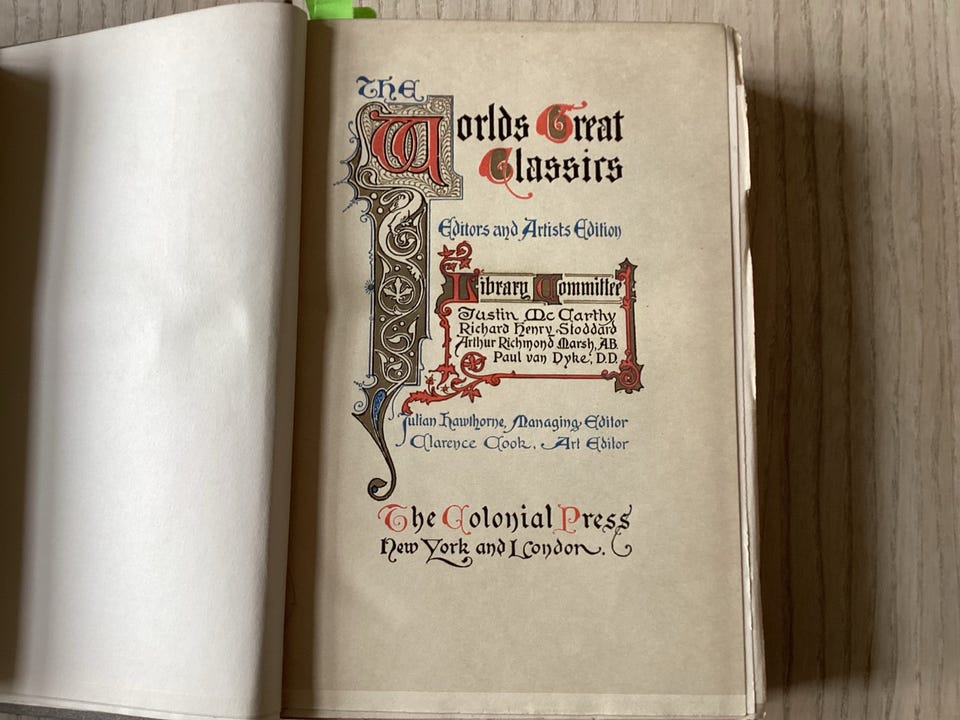 The
Worlds Great
Classics
Editors and Artists Edition
Library Committee
Justin McCarthy
Richard Henry Stoddard
Arthur Richmond Marsh, A.B.
Paul van Dyke, D.D.
Julian Hawthorne, Managing Editor
Clarence Cook, Art Editor
The Colonial Press
New York and London.